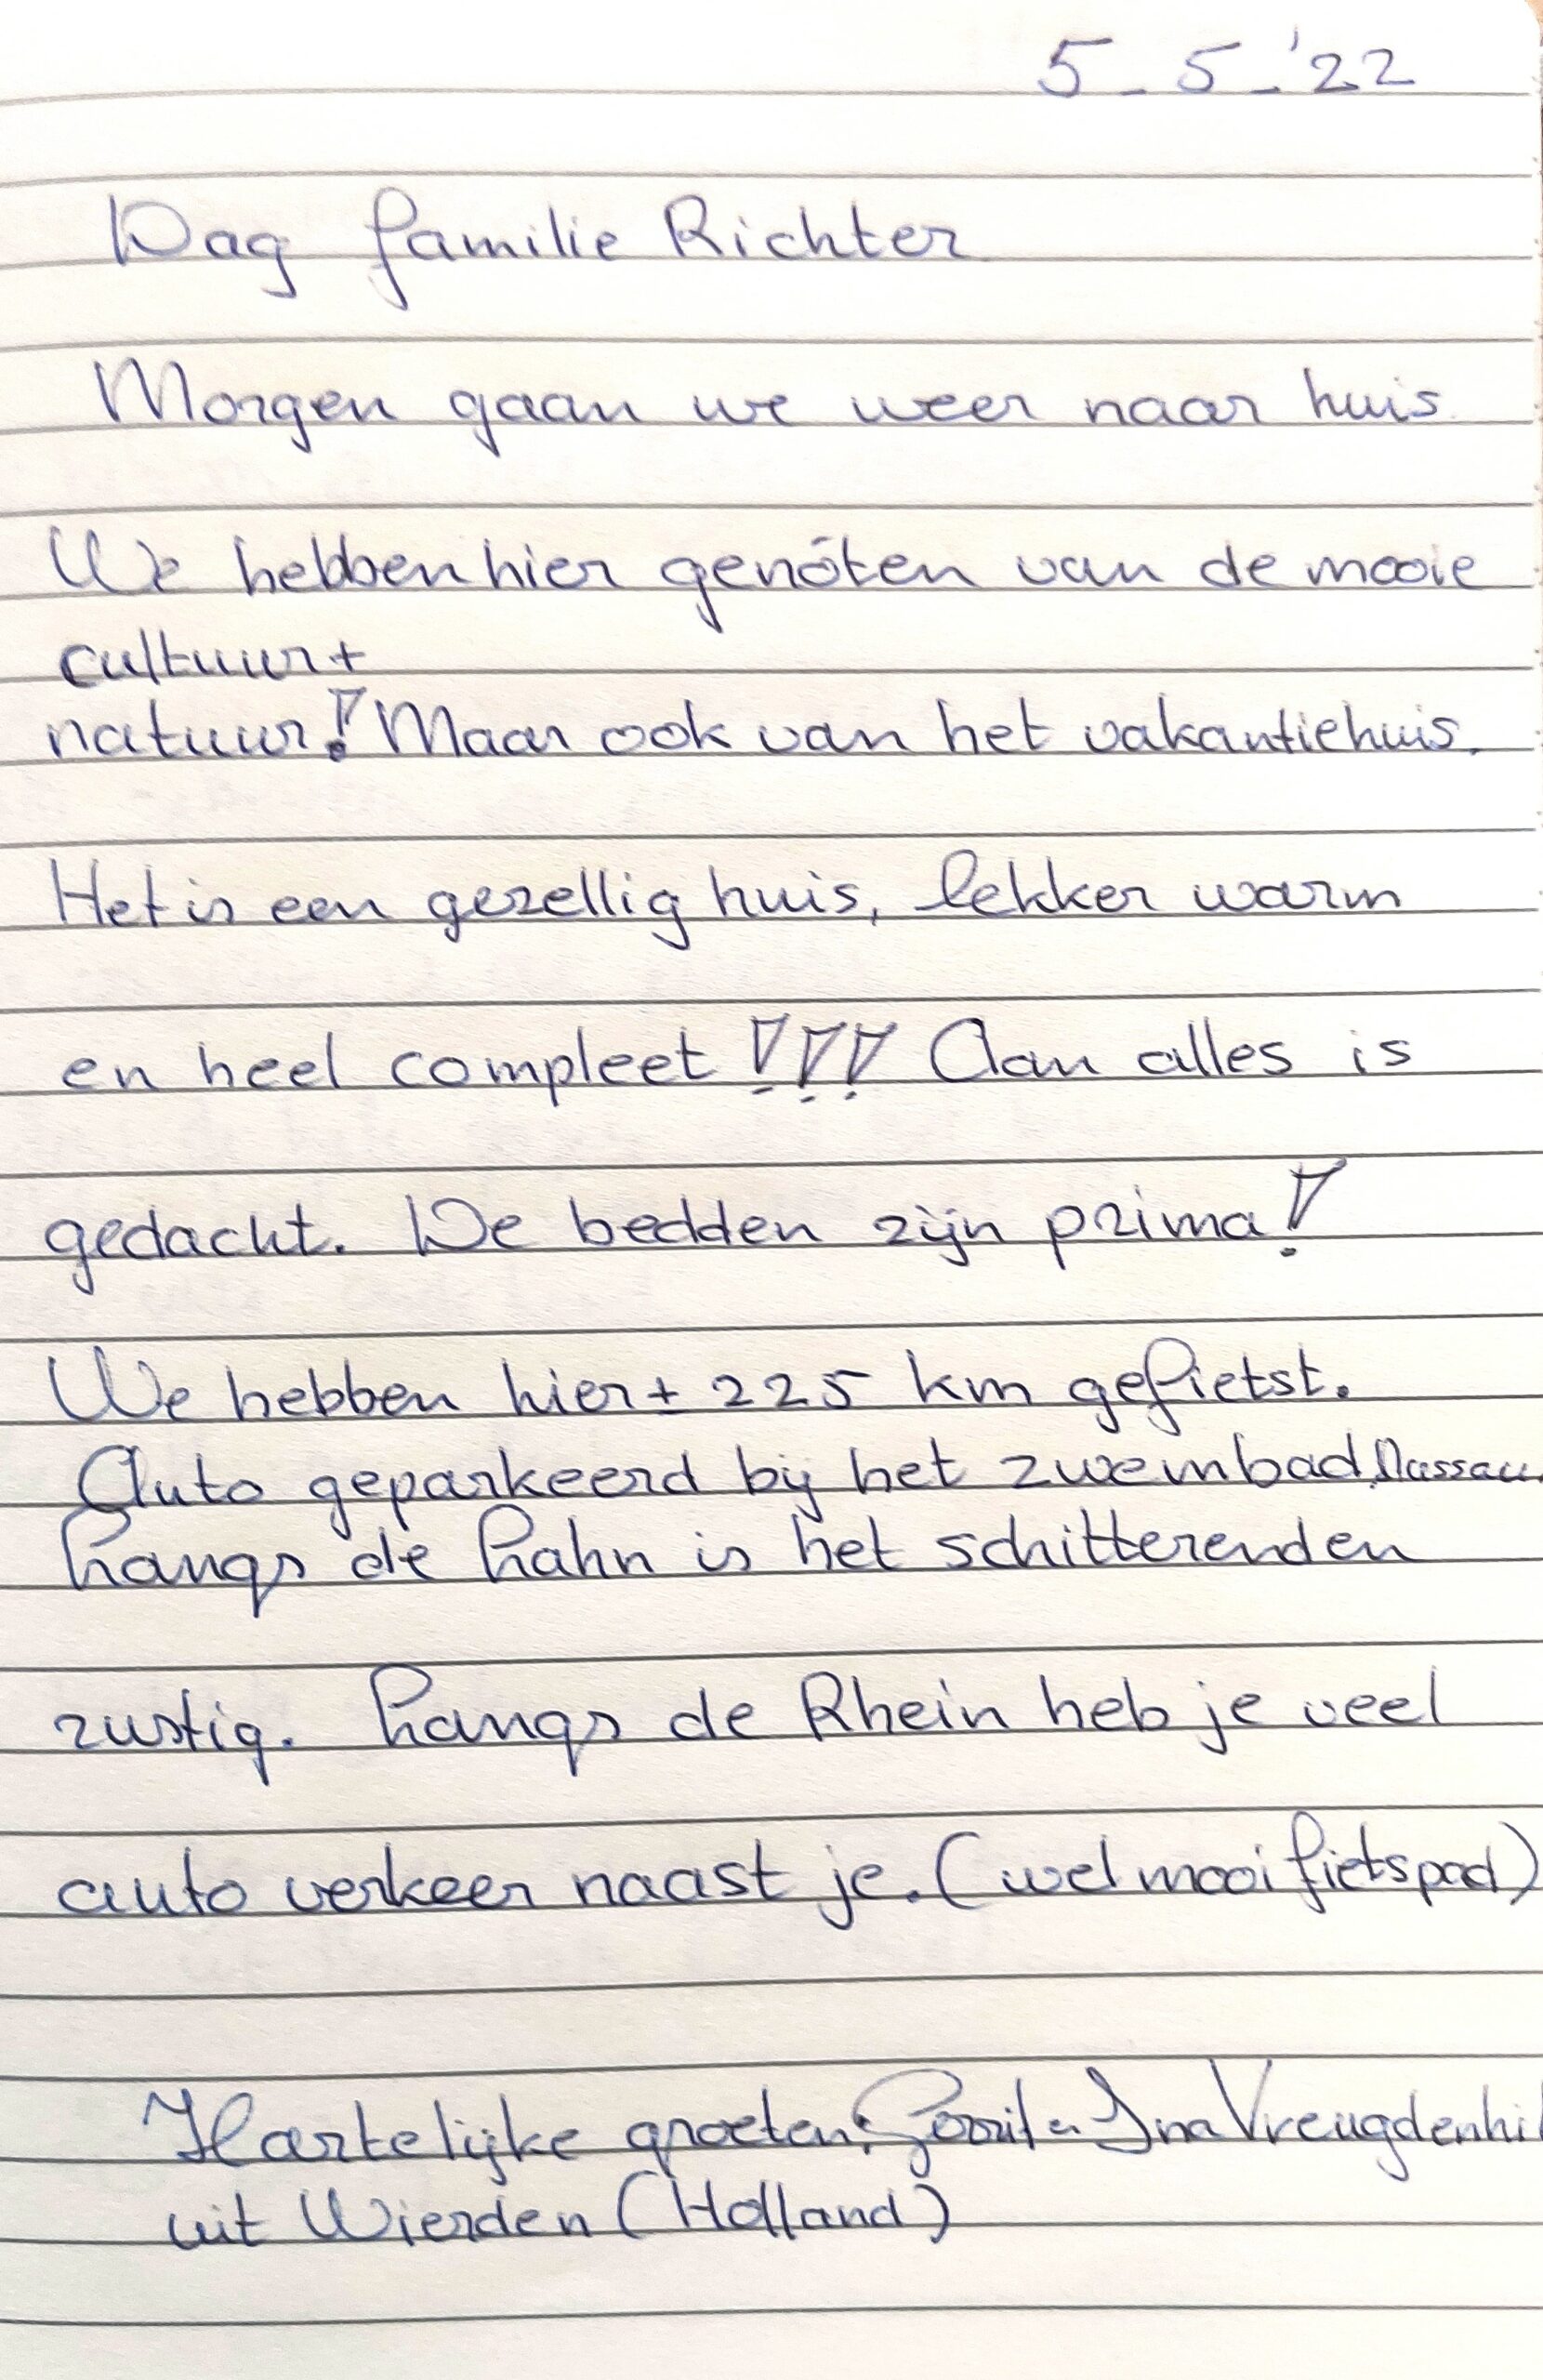 5-5-'22
Dag familie Richter
Morgen gaan we weer naar huis
We hebben hier genóten van de mooie
cultuur +
natuur! Maar ook van het vakantiehuis.
Het is een gezellig huis, lekker warm
en heel compleet!!! Aan alles is
gedacht. De bedden zijn prima!
We hebben hier ± 225 km gefietst.
Auto geparkeerd bij het zwembad, Nassau.
Langs de Lahn is het schitterend en
rustig. Langs de Rhein heb je veel
auto verkeer naast je. (wel mooi fietspad)
Hartelijke groeten: Gerrit en Ina Vreugdenhil
uit Wierden (Holland)